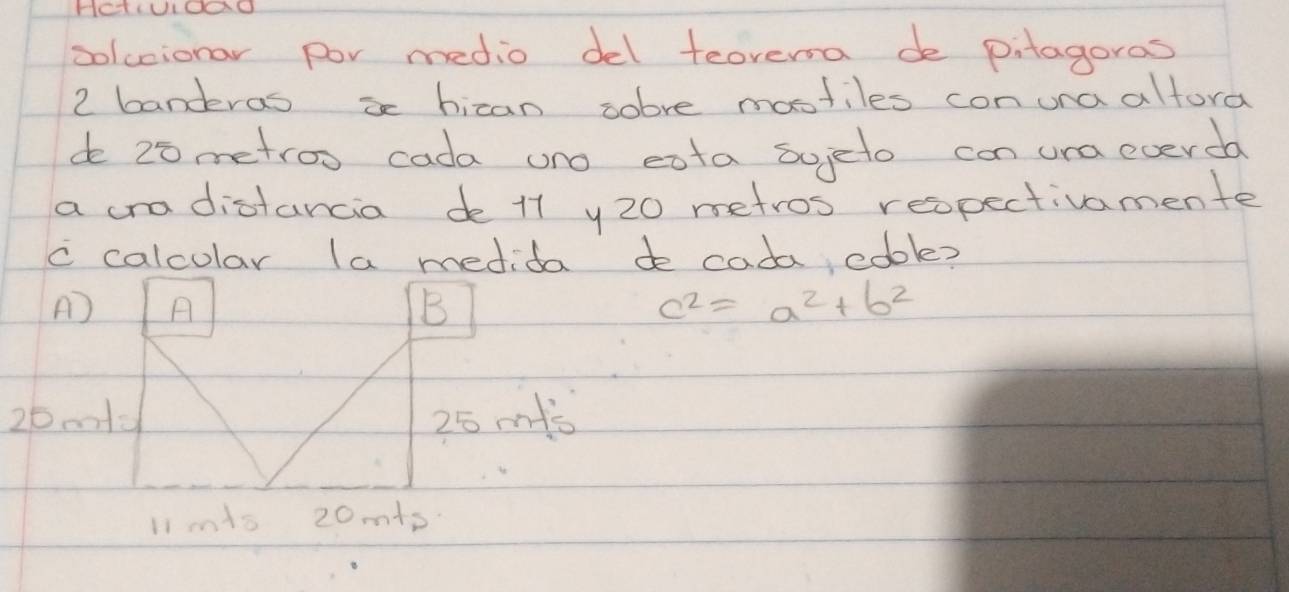 Actividad
solucionar por medio del teorema de pitagoras
2 banderas se hizan sobre mastiles con una altura
de 25 metros cada uno esta sujeto con una cuerda
a una distancia de 11 y 20 metros respectivamente
¿ calcular la medida de cada cable?
A) A B c² = a² + b²
25 mts 25 mts
11 mts 20 mts